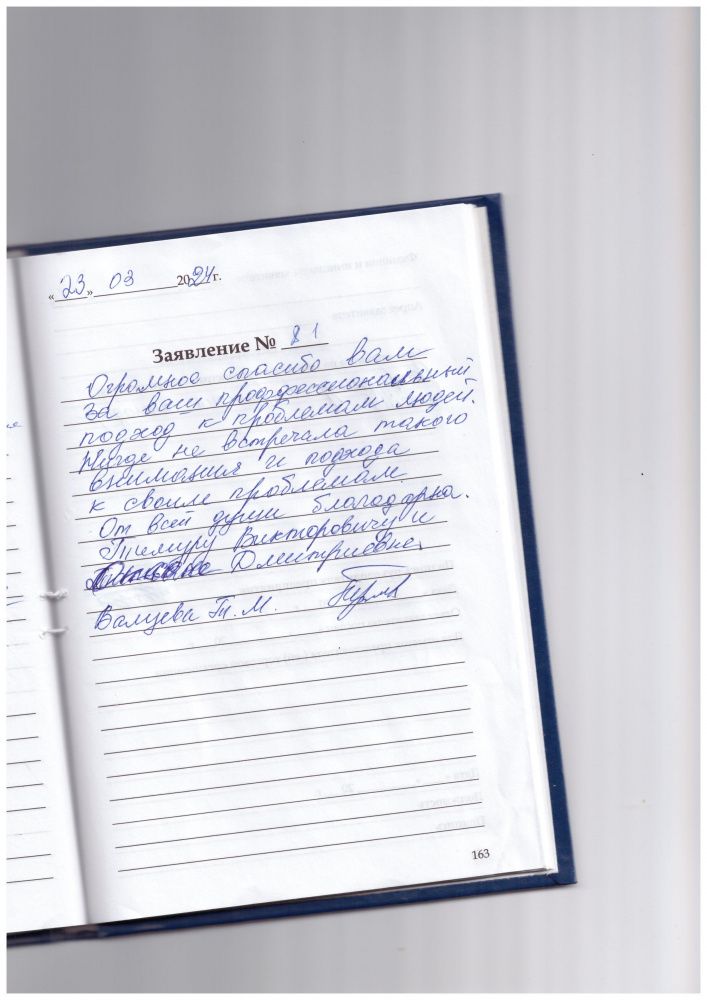 «23» 03 2024 г.
Заявление № 81
Огромное спасибо Вам
за ваш профессиональный
подход к проблемам людей.
Нигде не встречала такого
внимания и подхода
к своим проблемам.
От всей души благодарна.
Тимуру Викторовичу и
Дмитриевне.
Валуева Т. М.
163